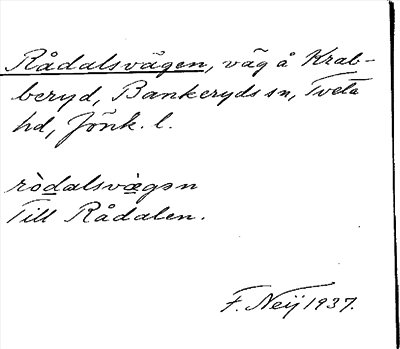 Rådalsvägen, väg å Krab-
beryd, Bankeryds sn, Tveta
hd, Jönk. l.
ròdalsvægən
Till Rådalen.
F. Neij 1937.